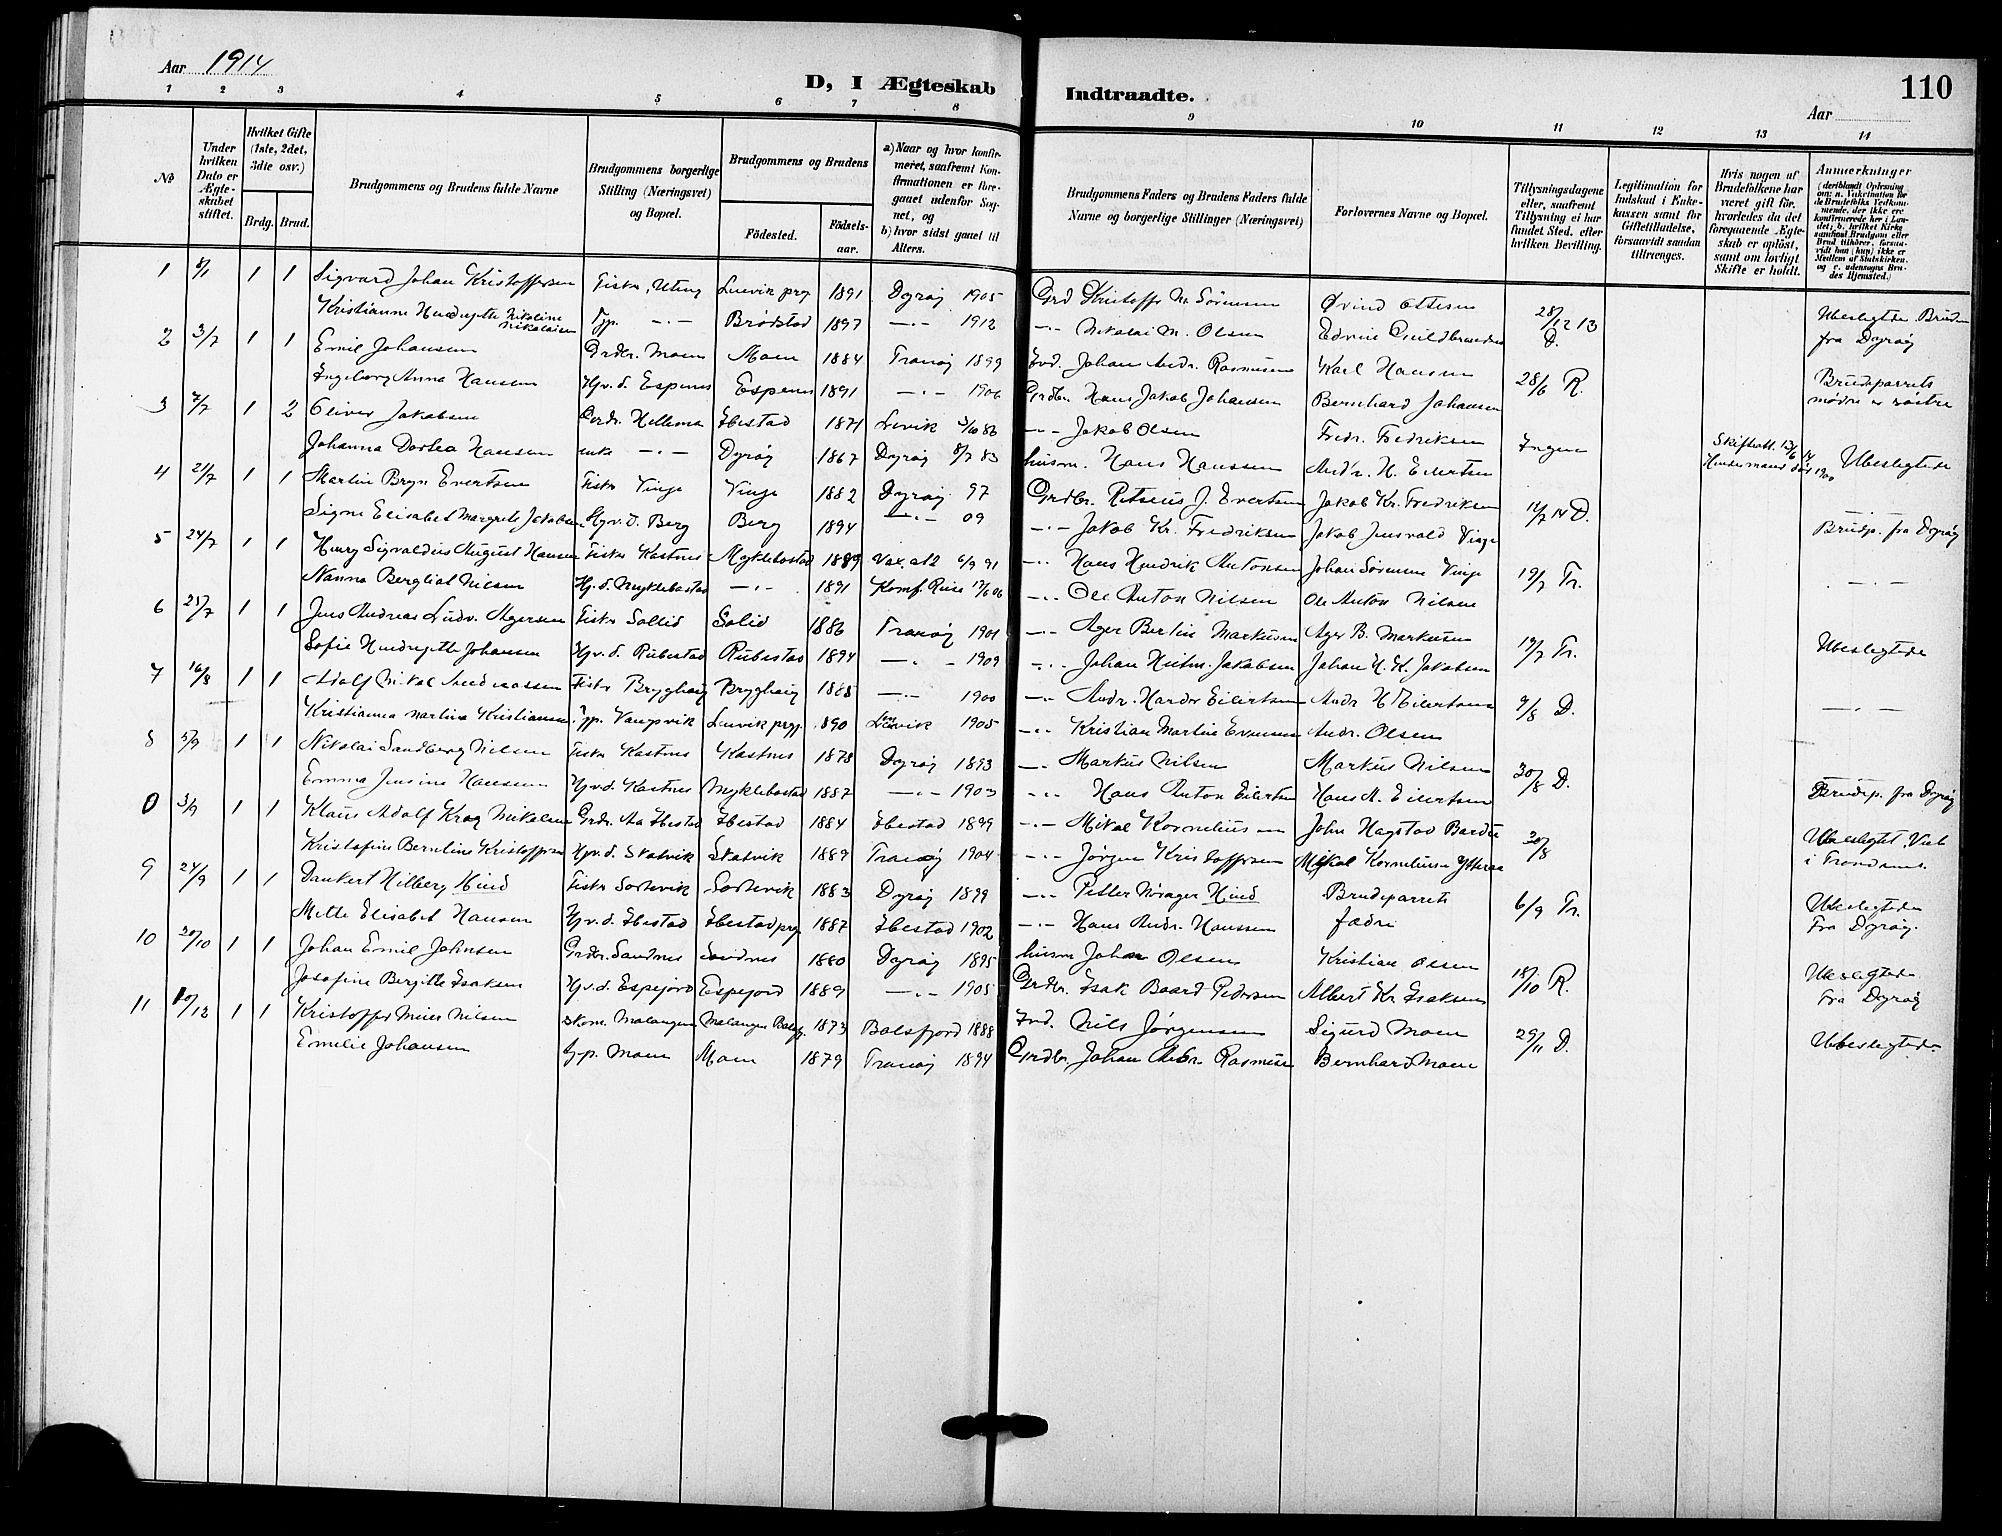 Aar 1914
D, I Ægteskab Indtraadte.
110
Aar
1 2 3 4 5 6 7 8 9 10 11 12 13 14
No
Under hvilken Dato er Ægteskabet stiftet.
Hvilket Gifte (1ste, 2det, 3die osv.)
Brdg. Brud.
Brudgommens og Brudens fulde Navne
Brudgommens borgerlige Stilling (Næringsvei) og Bopæl.
Brudgommens og Brudens
Födested. Födselsaar.
a) Naar og hvor konfirmeret, saafremt Konfirmationen er foregaaet udenfor Sognet, og
b) hvor sidst gaaet til Alters.
Brudgommens Faders og Brudens Faders fulde Navne og borgerlige Stillinger (Næringsvei)
Forlovernes Navne og Bopæl.
Tillysningsdagene eller, saafremt Tillysning ei har fundet Sted, efter hvilken Bevilling.
Legitimation for Indskud i Enkekassen samt for Giftetilladelse, forsaavidt saadan tiltrænges.
Hvis nogen af Brudefolkene har været gift för, hvorledes da det foregaaende Ægteskab er oplöst, samt om lovligt Skifte er holdt.
Anmerkninger
1 1 1 Sigvard Johan Kristoffersen Fisker, Lenvik prg 1891 Dyröy 1905 Kristoffer Sörensen Øvind Ottesen 28/12 13 D. Ubeslegtede. Bruden
Kristianne Nikoline Nikolaisen —"— Brödstad 1897 —"— 1912 —"— Nikolai M. Olsen Edvin fra Dyröy
2 3/7 1 1 Emil Johansen Grdbr. Moen Moen 1884 Tranöy 1899 Ind. Johan Andr. Rasmussen Karl Hansen 28/6 R. Brudeparrets
Ingeborg Anna Hansen Hjv. d. Espenes Espenes 1891 —"— 1906 Grdbr. Hans Jakob Johansen Bernhard Johansen mödre er söstre
3 7/7 1 2 Oliver Jakobsen Hellemo Ibestad 1871 Lenvik 86 —"— Jakob Olsen Fredr. Fredriksen Ingen Skifteatt. Ubeslegtede
Johanna Dortea Hansen enke —"— Dyröy 1867 Dyröy 8/7 83 husm. Hans Hanssen Andr. H. Eilertsen 1900
4 21/7 1 1 Martin Bryn Evertsen Fisker Vinje Vinje 1882 Dyröy 97 Grdbr. J. Evertsen Jakob Kr. Fredriksen 12/7 14 D. —"—
Signe Elisabet Margrete Jakobsen Hjv. d. Berg Berg 1894 —"— 09 —"— Jakob Kr. Fredriksen Jakob Jensvold Vinje Brudep. fra Dyröy
5 24/7 1 1 Henry Sigvaldus August Hansen Fisker Kastnes Myklebostad 1889 Vax. at 2 6/9 91 —"— Hans Hendrik Antonsen Johan Sörensen Vinje 19/7 Tr. —"—
Nanna Bergliot Nilsen Hj. d. Myklebostad —"— 1891 Konf. 06 —"— Ole Anton Nilsen Ole Anton Nilsen
6 25/7 1 1 Jens Andreas Ludv. Agersen Fisker Sollid Solid 1886 Tranöy 1901 —"— Ager Bertin Markussen Ager B. Markusen 19/7 Tr. Ubeslegtede
Sofie Hendrijette Johansen Hjv. d. Rubestad Rubestad 1894 —"— 1909 —"— Johan Jakobsen Johan H. K. Jakobsen
7 16/8 1 1 Adolf Mikal Andreassen Fisker Bryghaug Bryghaug 1885 —"— 1900 —"— Andr. Harder Eilertsen Andr H Eilertsen 9/8 D. —"—
Kristianna Martine Kristiansen Tjp. Vangsvik Lenvik prgj. 890 Lenvik 1905 —"— Kristian Martin Evensen Andr. Olsen
8 3/9 1 1 Nikolai Sandberg Nilsen Fisker Kastnes Kastnes 1878 Dyröy 1893 —"— Markus Nilsen Markus Nilsen 30/8 D.
Emma Jensine Hanssen Hjv. d. Kastnes Myklebostad 1887 —"— 1903 —"— Hans Anton Eilertsen Hans A. Eilertsen Brudep. fra Dyröy
0 3/9 1 1 Klaus Adolf Krog Mikalsen Grdbr. Aa Ibestad Ibestad 1884 Ibestad 1899 —"— Mikal Kornelius John Hagstad Bardu 30/8 Ubeslegtet. Viet
Kristofine Berntine Kristoffersen Hjv. d. Skatvik Skatvik 1889 Tranöy 1904 —"— Jörgen Kristoffersen Mikal Kornelius i
9 24/9 1 1 Dankert Hilberg Hind Fisker Sortevik Sortevik 1883 Dyröy 1899 —"— Petter Hind Brudeparrets 6/9 Tr. Ubeslegtede
Mette Elisabet Hansen Hjv. d. Ibestad Ibestad prg 1887 Ibestad 1902 —"— Hans Andr. Hanssen fædre Fra Dyröy.
10 20/10 1 1 Johan Emil Johnsen Grdbr. Sandnes Sandnes 1880 Dyröy 1895 husm Johan Olsen Kristian Olsen 18/10 R. Ubeslegtede
Josefine Bergitte Isaksen Hjv. d. Espejord Espejord 1889 —"— 1905 Grdbr. Isak Baard Pedersen Albert Kr. Isaksen Fra Dyröy
11 10/12 1 1 Kristoffer Meier Nilsen Skom. Malangen Malangen Balsfj. 1873 Balsfjord 1888 Ind. Nils Jörgensen Sigurd Moen 29/11 D. Ubeslegtede
Emelie Johansen Tjp. Moen Moen 1879 Tranöy 1894 Grdbr. Johan Andr. Rasmussen Bernhard Moen